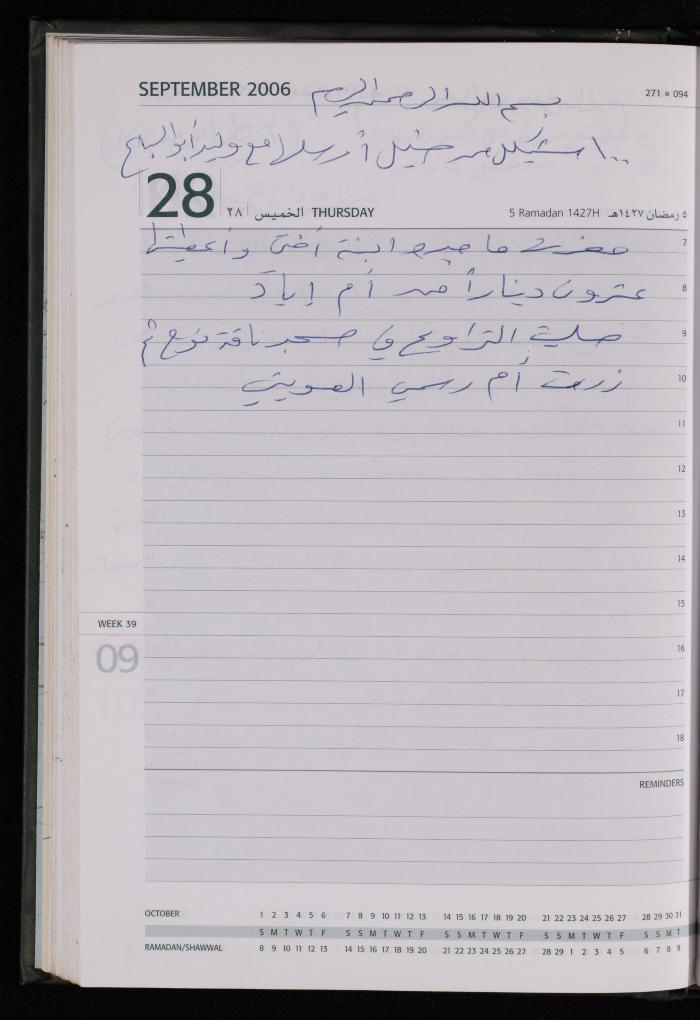 SEPTEMBER 2006 بسم الله الرحمن الرحيم 271 ■ 094
شيكل من أرسلها مع وليد أبو
28 ٢٨ الخميس THURSDAY 5 Ramadan 1427H ٥ رمضان ١٤٢٧هـ
حضرت ماجدة ابنة أختي وأعطيتها 7
عشرون ديناراً من أم إياد 8
صليت التراويح في مسجد ناقة نوح ثم 9
زرت أم رسمي العويني 10
11
12
13
14
15
WEEK 39
16
09
17
18
REMINDERS
OCTOBER 1 2 3 4 5 6 7 8 9 10 11 12 13 14 15 16 17 18 19 20 21 22 23 24 25 26 27 28 29 30 31
S M T W T F S S M T W T F S S M T W T F S S M T W T F S S M T
RAMADAN/SHAWWAL 8 9 10 11 12 13 14 15 16 17 18 19 20 21 22 23 24 25 26 27 28 29 1 2 3 4 5 6 7 8 9